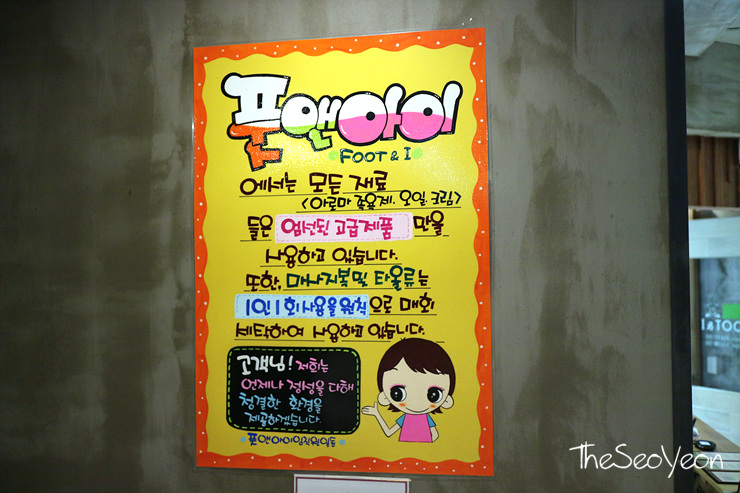 풋앤아이
FOOT & I
에서는 모든 재료
<아로마 족욕제. 오일. 크림>
들은 엄선된 고급제품 만을
사용하고 있습니다.
또한, 마사지복 및 타올류는
1인 1회 사용을 원칙으로 매회
세탁하여 사용하고 있습니다.
고객님! 저희는
언제나 정성을 다해
청결한 환경을
제공하겠습니다
풋앤아이 임직원 일동
TheSeoYeon